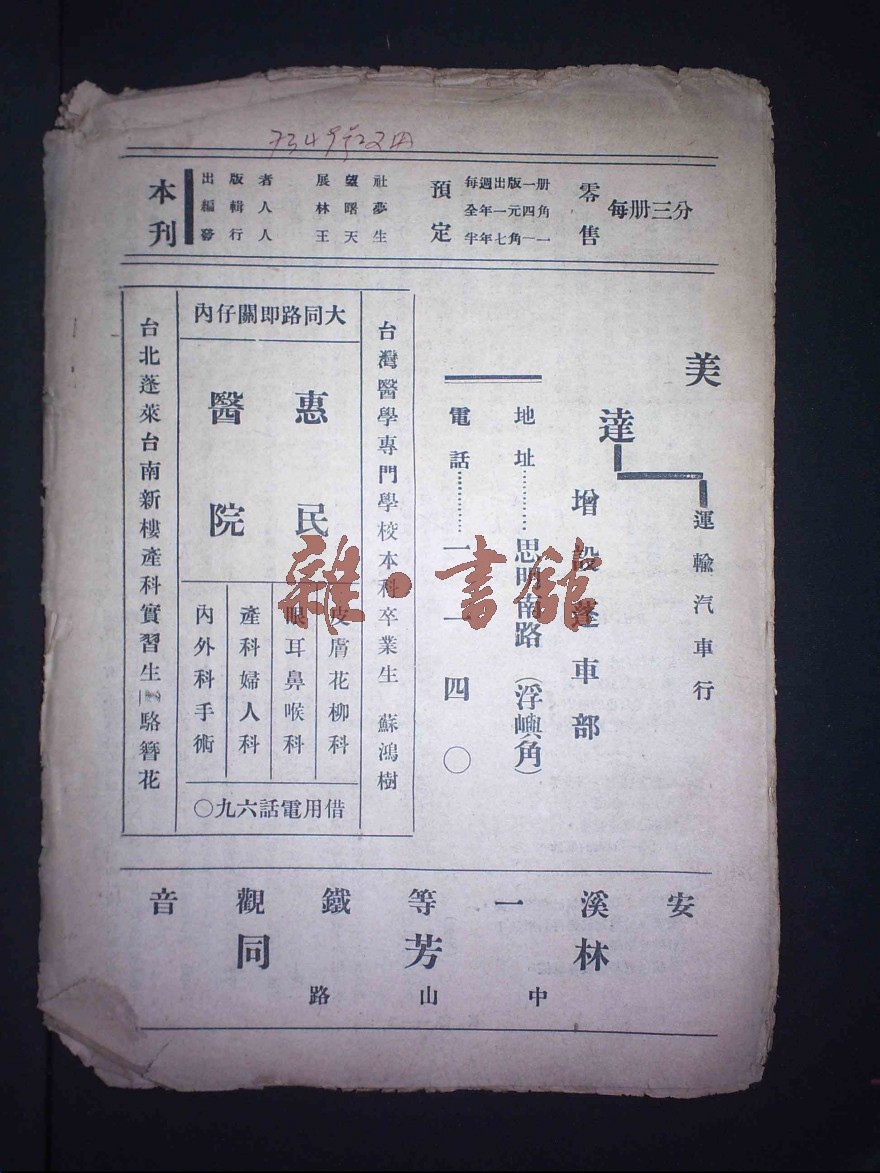 本刊
出版者 展望社
編輯人 林曙夢
發行人 王天生
預定
每週出版一册
全年一元四角
半年七角一一
零售
每册三分
美達
運輸汽車行
增設蓬車部
地址………思明南路（浮嶼角）
電話
四〇
台灣醫學專門學校本科卒業生 蘇鴻樹
大同路即關仔內
惠民
醫院
皮膚花柳科
眼耳鼻喉科
產科婦人科
內外科手術
借用電話六九〇
台北蓬萊台南新樓產科實習生 駱簪花
安溪一等鐵觀音
林芳同
中山路
雜·書館